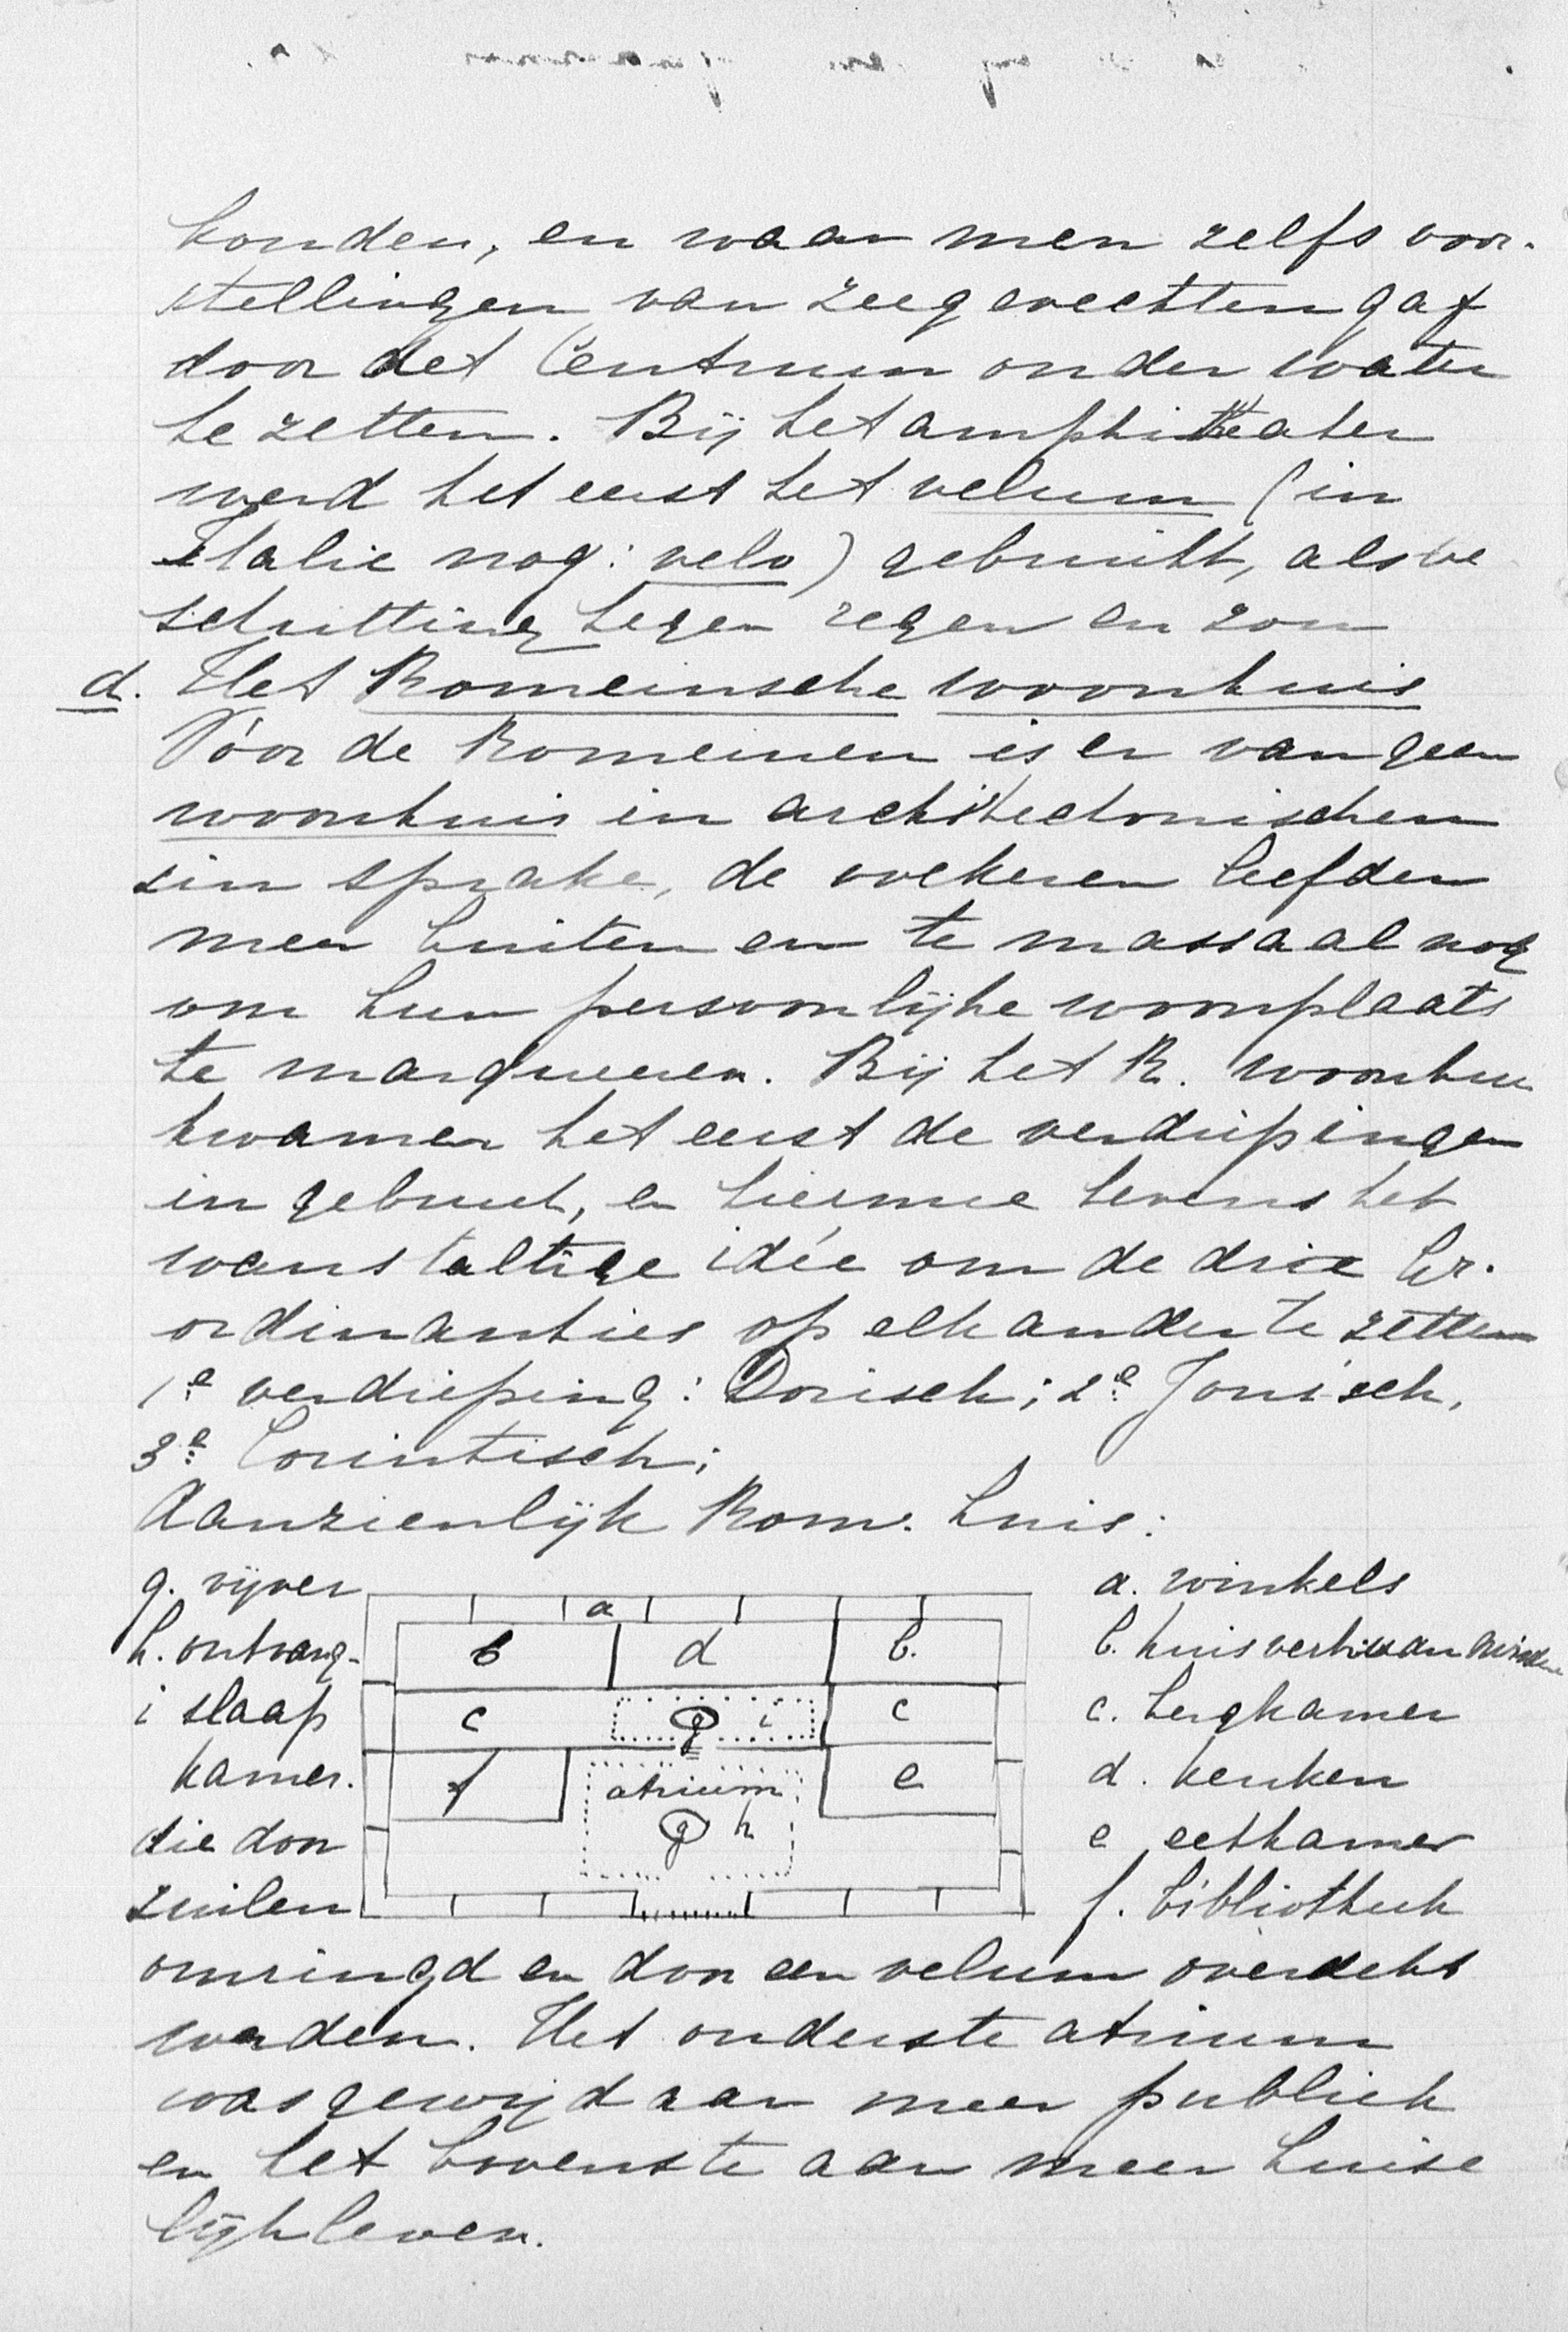 konden, en waar men zelfs voor-
stellingen van zeegevechten gaf
door het Centrum onder water
te zetten. Bij het amphitheater
werd het eerst het velum (in
Italie nog: velo) gebruikt, als be
schutting tegen regen en zon
d. Het Romeinsche woonhuis
Vóor de Romeinen is er van geen
woonhuis in architectonischen
zin sprake, de volkeren leefden
meer buiten en te massaal nog
om hun persoonlijke woonplaats
te marqueeren. Bij het R. woonhuis
kwamen het eerst de verdiepingen
in gebruik, en hiermee tevens het
wanstaltige idée om de drie Gr.
ordinanties op elkander te zetten
1e verdieping: Dorisch; 2e Jonisch,
3e Corintisch;
Aanzienlijk Rom. huis:
g. vijver
h. ontvang-
i slaap
kamer.
die door
zuilen
a
b d b.
c g i c
f atrium e
g h
a. winkels
b. huisvertr. van
c. bergkamer
d. keuken
e eetkamer
f. bibliotheek
omringd en door een velum overdekt
werden. Het onderste atrium
was gewijd aan meer publiek
en het bovenste aan meer huise
lijk leven.